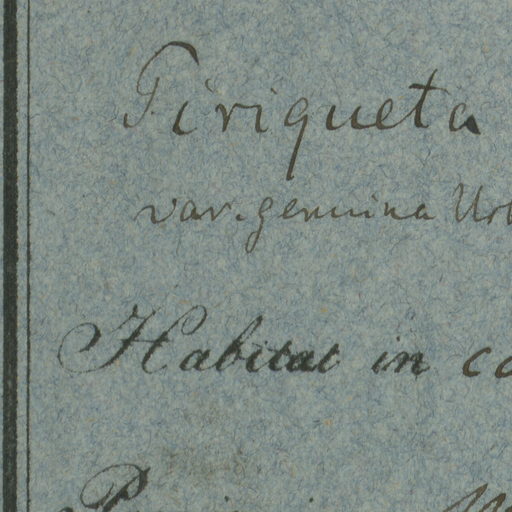 Piriqueta
var. genuina Urb
Habitat in ca